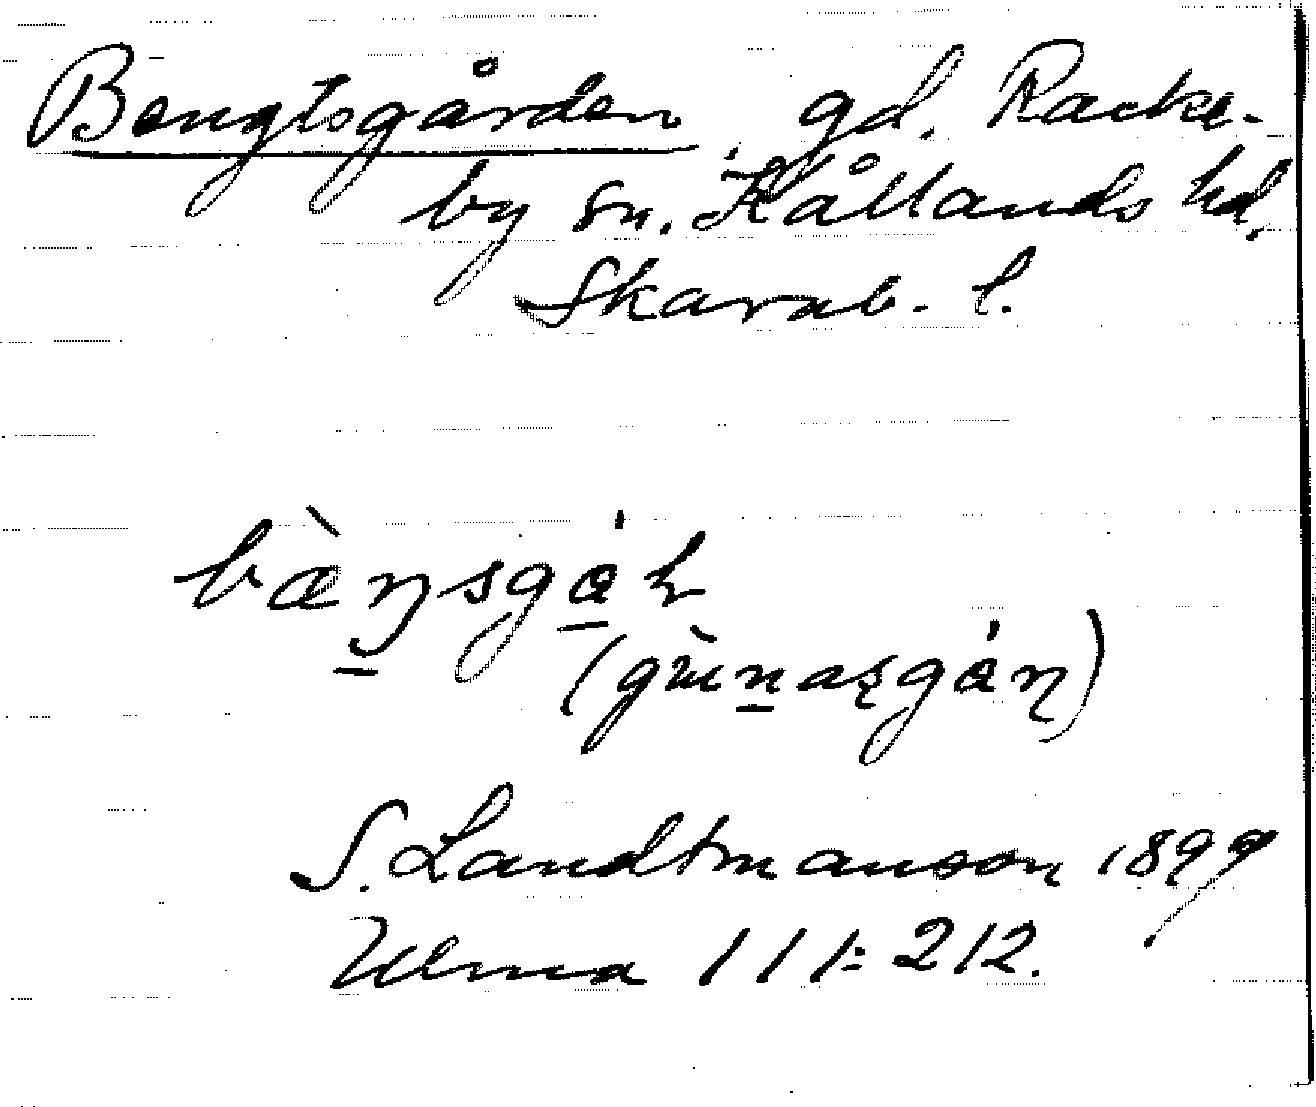 Bengtsgården gd. Racke-
by sn. Kållands hd.
Skarab. l.
S. Landtmanson 1899
Ulma 111:212.